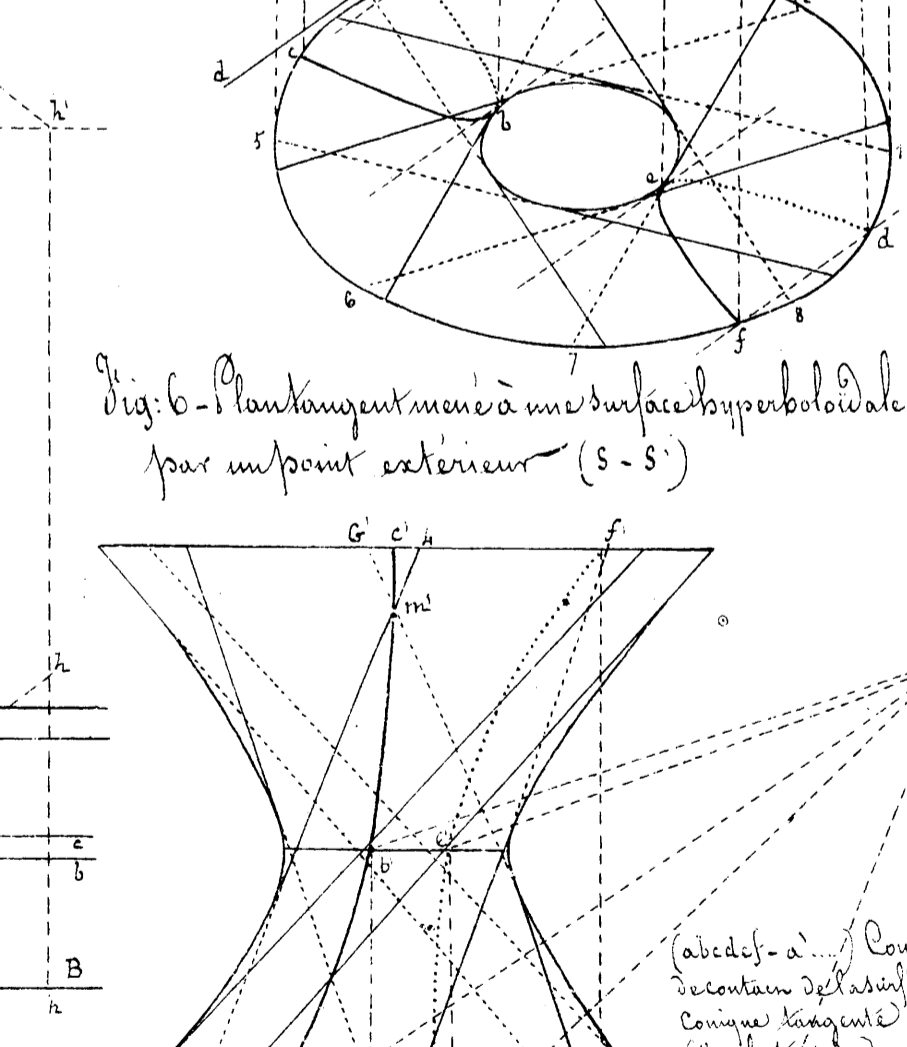 h'
c
d
b
5
1
e
d
6
8
7
f
Fig: 6 - Plan tangent mené à une surface hyperboloïdale
par un point extérieur (S - S')
G' c' 4 f'
m'
h
e'
b'
c
b
B
h
(abcdef - a'....) Cou
de contacn de la surf
Conique tangente